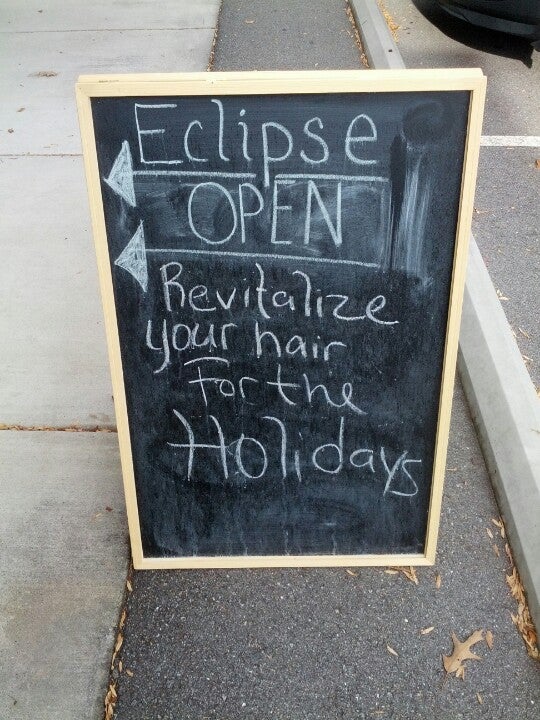 Eclipse
OPEN
Revitalize
your hair
For the
Holidays